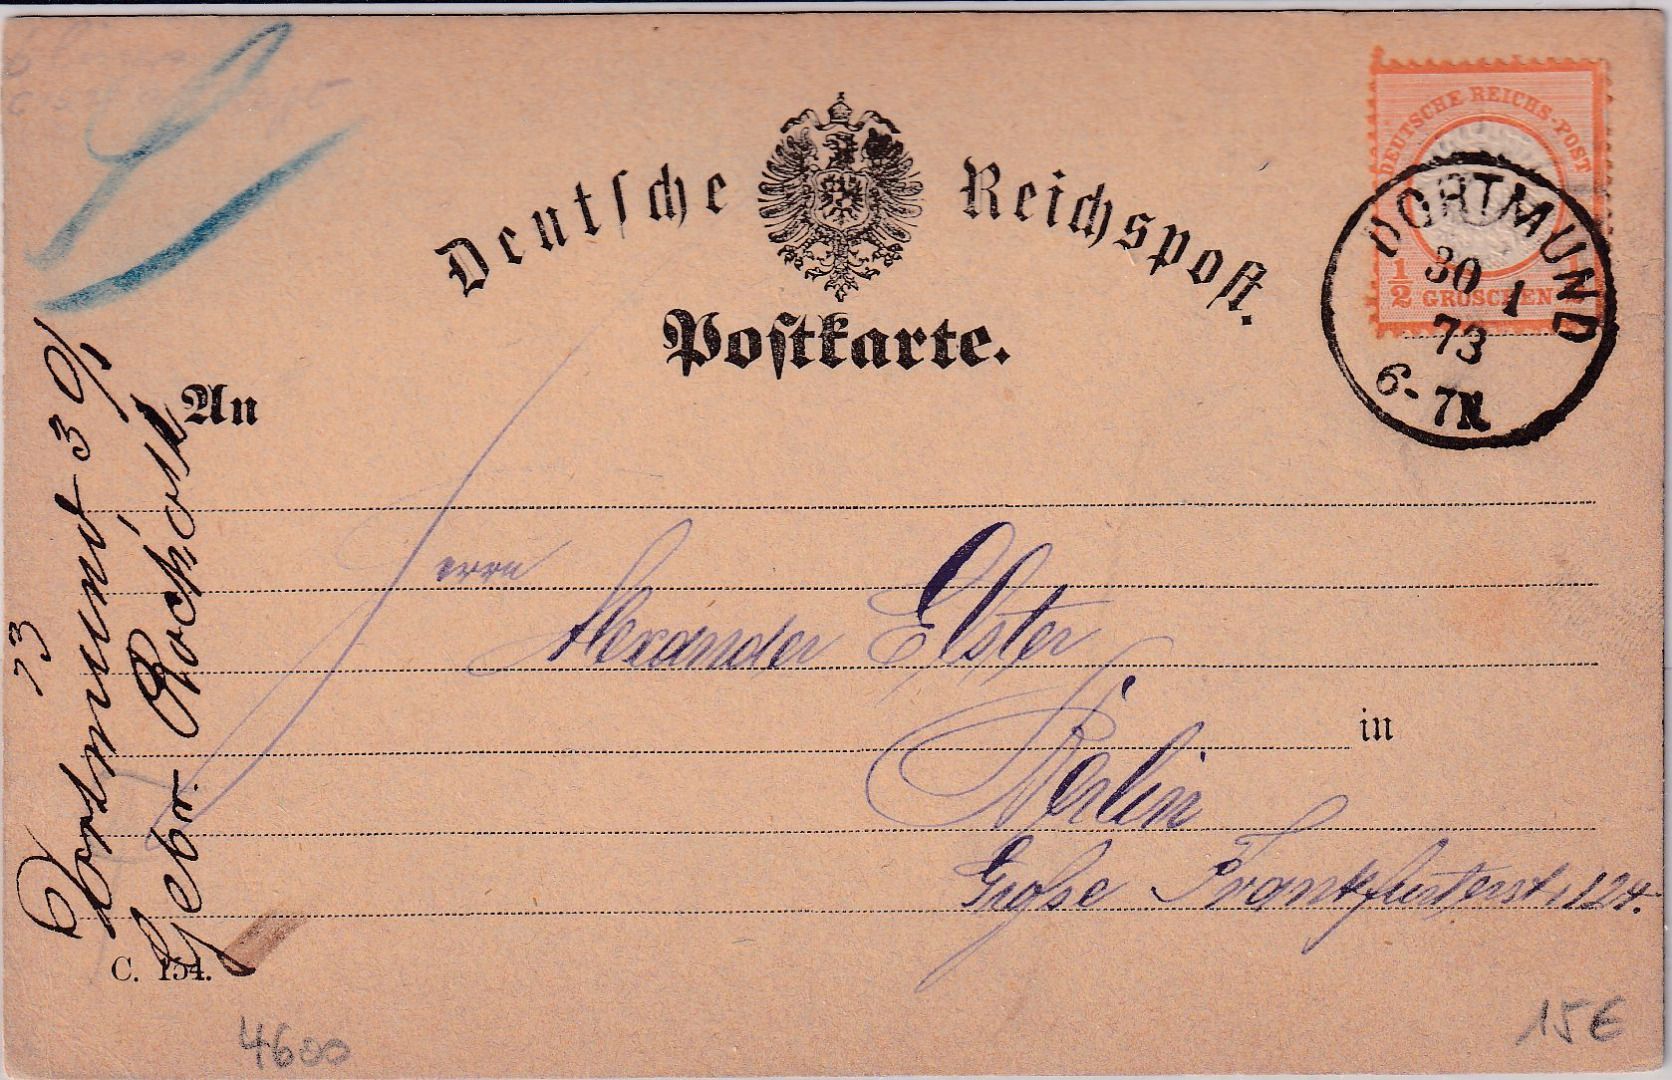 Deutsche Reichspost.
Postkarte.
DEUTSCHE REICHS-POST
1/2 GROSCHEN
DORTMUND
30 1
73
6-7N
An
Herrn
Alexander Elster
in
Berlin
Große Frankfurterst, 124.
Dortmund 30/1
73
Gebr.
C. 154.
4600
15€